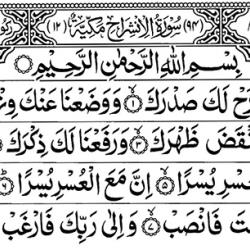 (٩٤) سُوْرَةُ الْاِنْشِرَاحِ مَكِّيَّةٌ (١٢)
بِسْمِ اللهِ الرَّحْمٰنِ الرَّحِيْمِ
لَكَ صَدْرَكَ ۙ﴿١﴾ وَوَضَعْنَا عَنْكَ
ظَهْرَكَ ۙ﴿٣﴾ وَرَفَعْنَا لَكَ ذِكْرَكَ
يُسْرًا ۙ﴿٥﴾ اِنَّ مَعَ الْعُسْرِ يُسْرًا ؕ﴿٦﴾
فَانْصَبْ ۙ﴿٧﴾ وَاِلٰى رَبِّكَ فَارْغَبْ